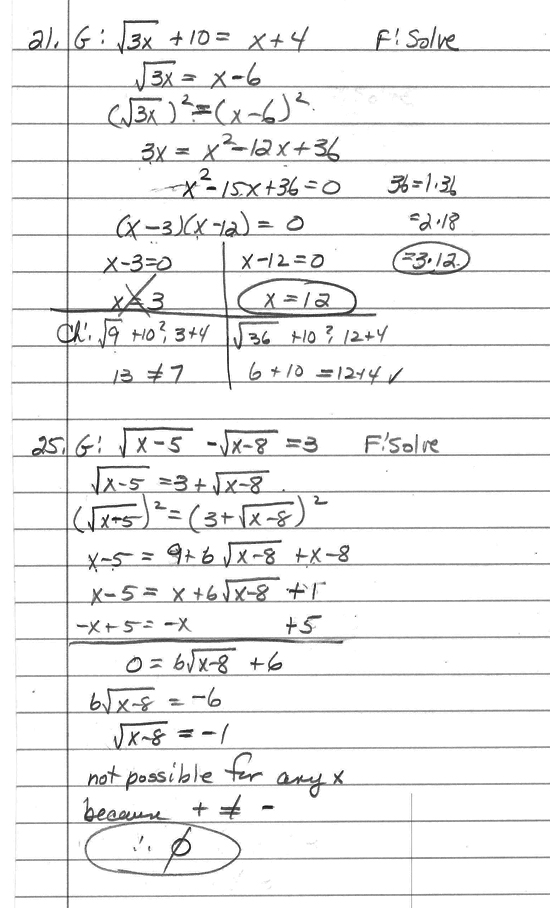 21. G: √3x + 10 = x + 4 F: Solve
√3x = x - 6
(√3x)² = (x - 6)²
3x = x² - 12x + 36
x² - 15x + 36 = 0 36 = 1·36
(x - 3)(x - 12) = 0 = 2·18
x - 3 = 0 x - 12 = 0 = 3·12
x = 3 x = 12
Ch: √9 + 10 ? 3 + 4 √36 + 10 ? 12 + 4
13 ≠ 7 6 + 10 = 12 + 4 ✓
25. G: √x-5 - √x-8 = 3 F: Solve
√x-5 = 3 + √x-8
(√x-5)² = (3 + √x-8)²
x - 5 = 9 + 6√x-8 + x - 8
x - 5 = x + 6√x-8 + 1
-x + 5 = -x + 5
0 = 6√x-8 + 6
6√x-8 = -6
√x-8 = -1
not possible for any x
because + ≠ -
∴ ∅